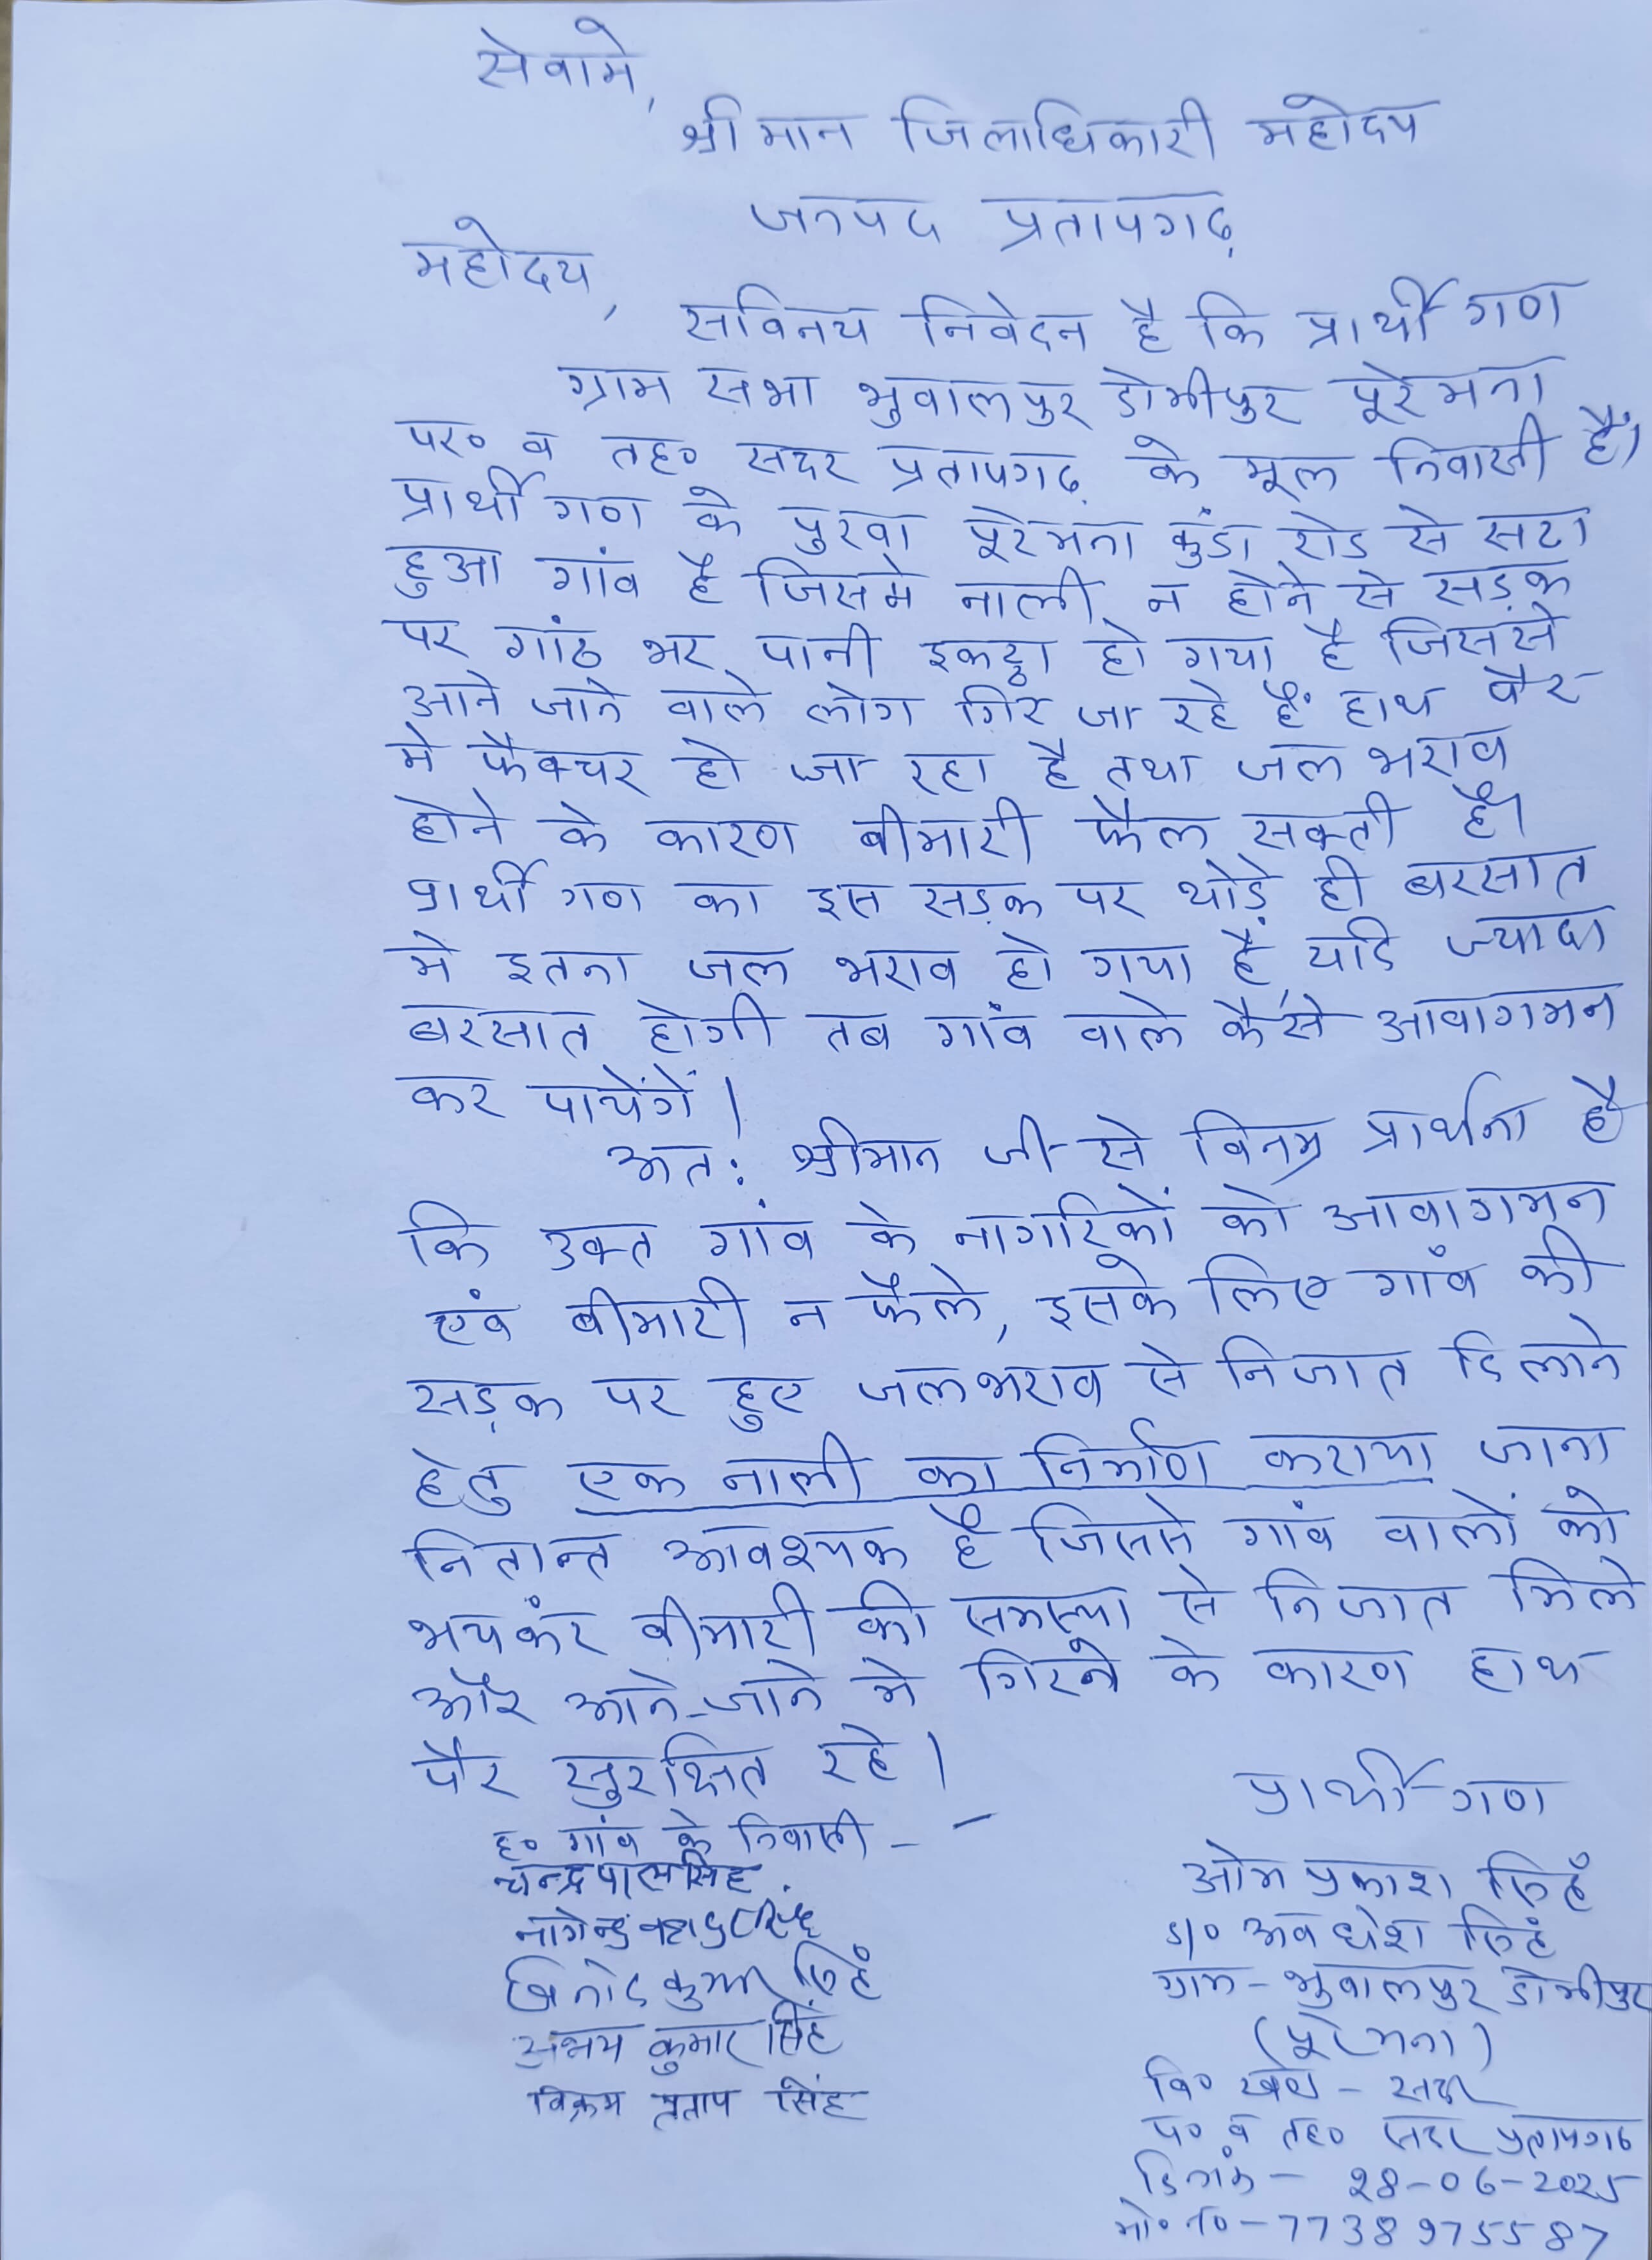 सेवामे,
श्रीमान जिलाधिकारी महोदय
जनपद प्रतापगढ़
महोदय,
सविनय निवेदन है कि प्रार्थी गण
ग्राम सभा भुवालपुर डोमीपुर पूरेमना
पर० व तह० सदर प्रतापगढ़ के मूल निवासी हैं।
प्रार्थी गण के पुरवा पूरेमना कुंडा रोड से सटा
हुआ गांव है जिसमे नाली न होने से सड़क
पर गांठ भर पानी इकट्ठा हो गया है जिससे
आने जाने वाले लोग गिर जा रहे हैं हाथ पैर
मे फैक्चर हो जा रहा है तथा जल भराव
होने के कारण बीमारी फैल सक्ती है।
प्रार्थी गण का इस सड़क पर थोड़े ही बरसात
मे इतना जल भराव हो गया है, यदि ज्यादा
बरसात होगी तब गांव वाले कैसे आवागमन
कर पायेंगें।
अत: श्रीमान जी से विनम्र प्रार्थना है
कि उक्त गांव के नागरिकों को आवागमन
एंव बीमारी न फैले, इसके लिए गाँव की
सड़क पर हुए जलभराव से निजात दिलाने
हेतु एक नाली का निर्माण कराया जाना
नितान्त आवश्यक है जिससे गांव वालों को
भयकंर बीमारी की समस्या से निजात मिले
और आने-जाने मे गिरने के कारण हाथ
पैर सुरक्षित रहे।
प्रार्थी-गण
ह० गांव के निवासी - -
चन्द्रपालसिंह
नागेन्द्र बहादुर सिंह
विनोद कुमार सिंह
अभय कुमार सिंह
विक्रम प्रताप सिंह
ओम प्रकाश सिहं
S/० अवधेश सिहं
ग्राम - भुवालपुर डोमीपुर
(पूरेमना)
वि० खण्ड - सदर
प० व तह० सदर प्रतापगढ
दिनांक - 28-06-2025
मो० न० - 7738975587